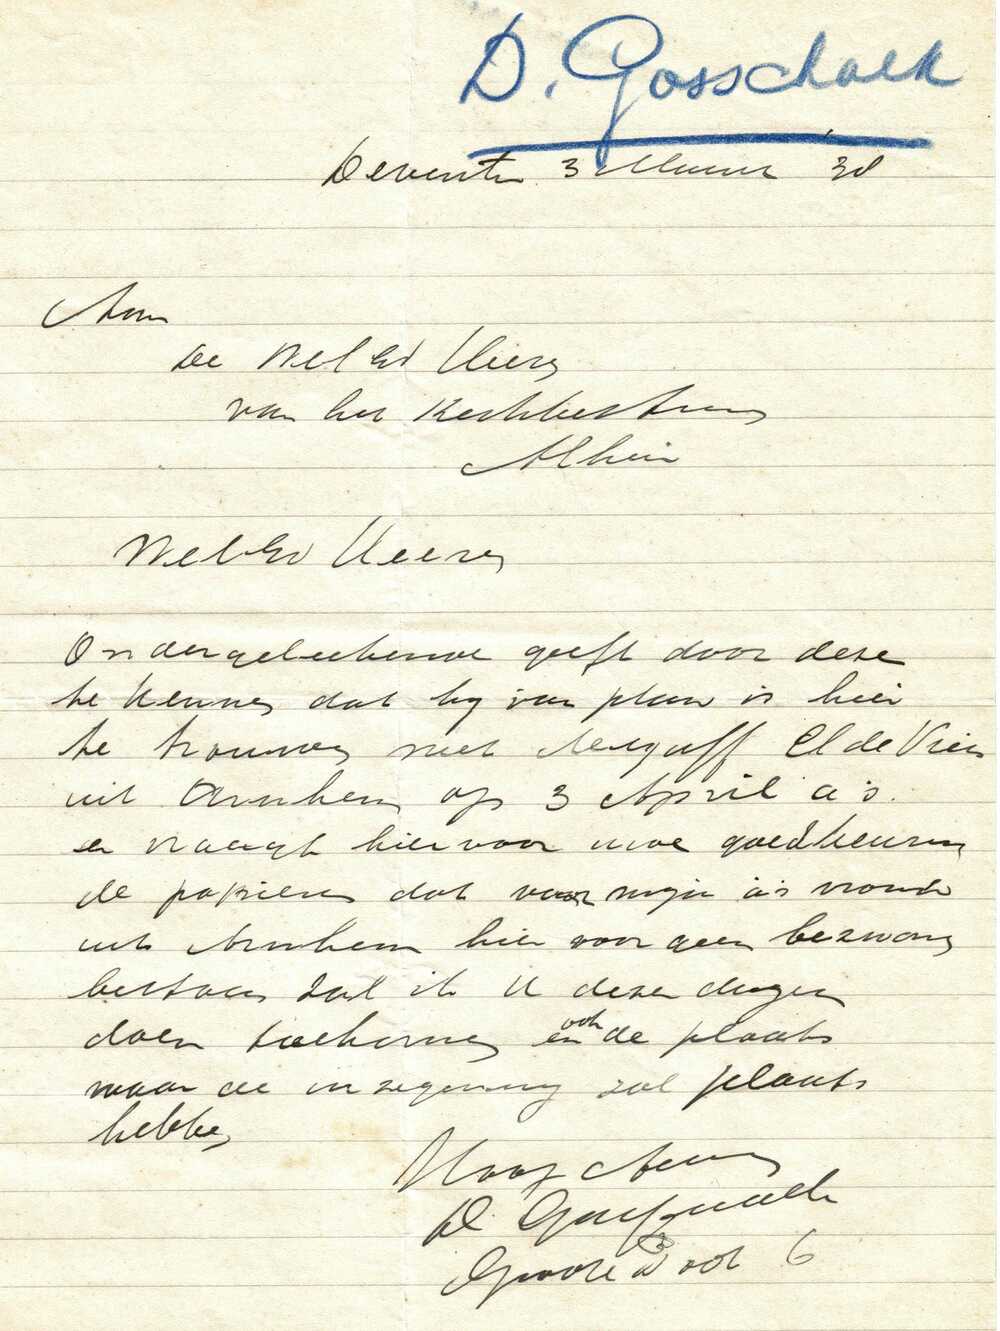 D. Gosschalk
Deventer 3 Maart '38
Aan
De WelEd Heeren
van het Kerkbestuur
Alhier
WelEd Heeren
Ondergeteekende geeft door deze
te kennen dat hij van plan is hier
te trouwen met Mejuff El de Vries
uit Arnhem op 3 April a s.
en vraagt hiervoor uwe goedkeuring
de papieren dat voor mijn a s vrouw
uit Arnhem hier voor geen bezwaren
bestaan zal ik U dezer dagen
doen toekomen en ook de plaats
waar de inzegening zal plaats
hebben
Hoog Achtend
D. Gosschalk
Groote Poot 6